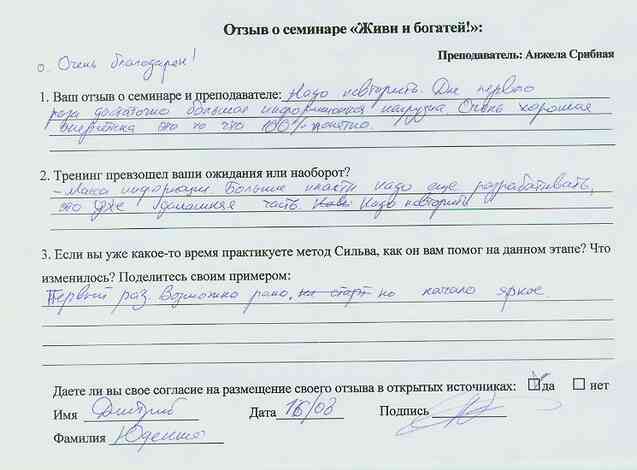 Отзыв о семинаре «Живи и богатей!»:
о. Очень благодарен!
Преподаватель: Анжела Срибная
1. Ваш отзыв о семинаре и преподавателе: Надо повторить. Для первого
раза достаточно большая информационная нагрузка. Очень хорошая
энергетика это то что 100% понятно.
2. Тренинг превзошел ваши ожидания или наоборот?
- Масса информации. Большие пласты надо еще разрабатывать,
это уже домашняя часть. Надо повторить
3. Если вы уже какое-то время практикуете метод Сильва, как он вам помог на данном этапе? Что
изменилось? Поделитесь своим примером:
Первый раз. Возможно рано, но начало яркое.
Даете ли вы свое согласие на размещение своего отзыва в открытых источниках: да нет
Имя Дмитрий Дата 16/03 Подпись
Фамилия